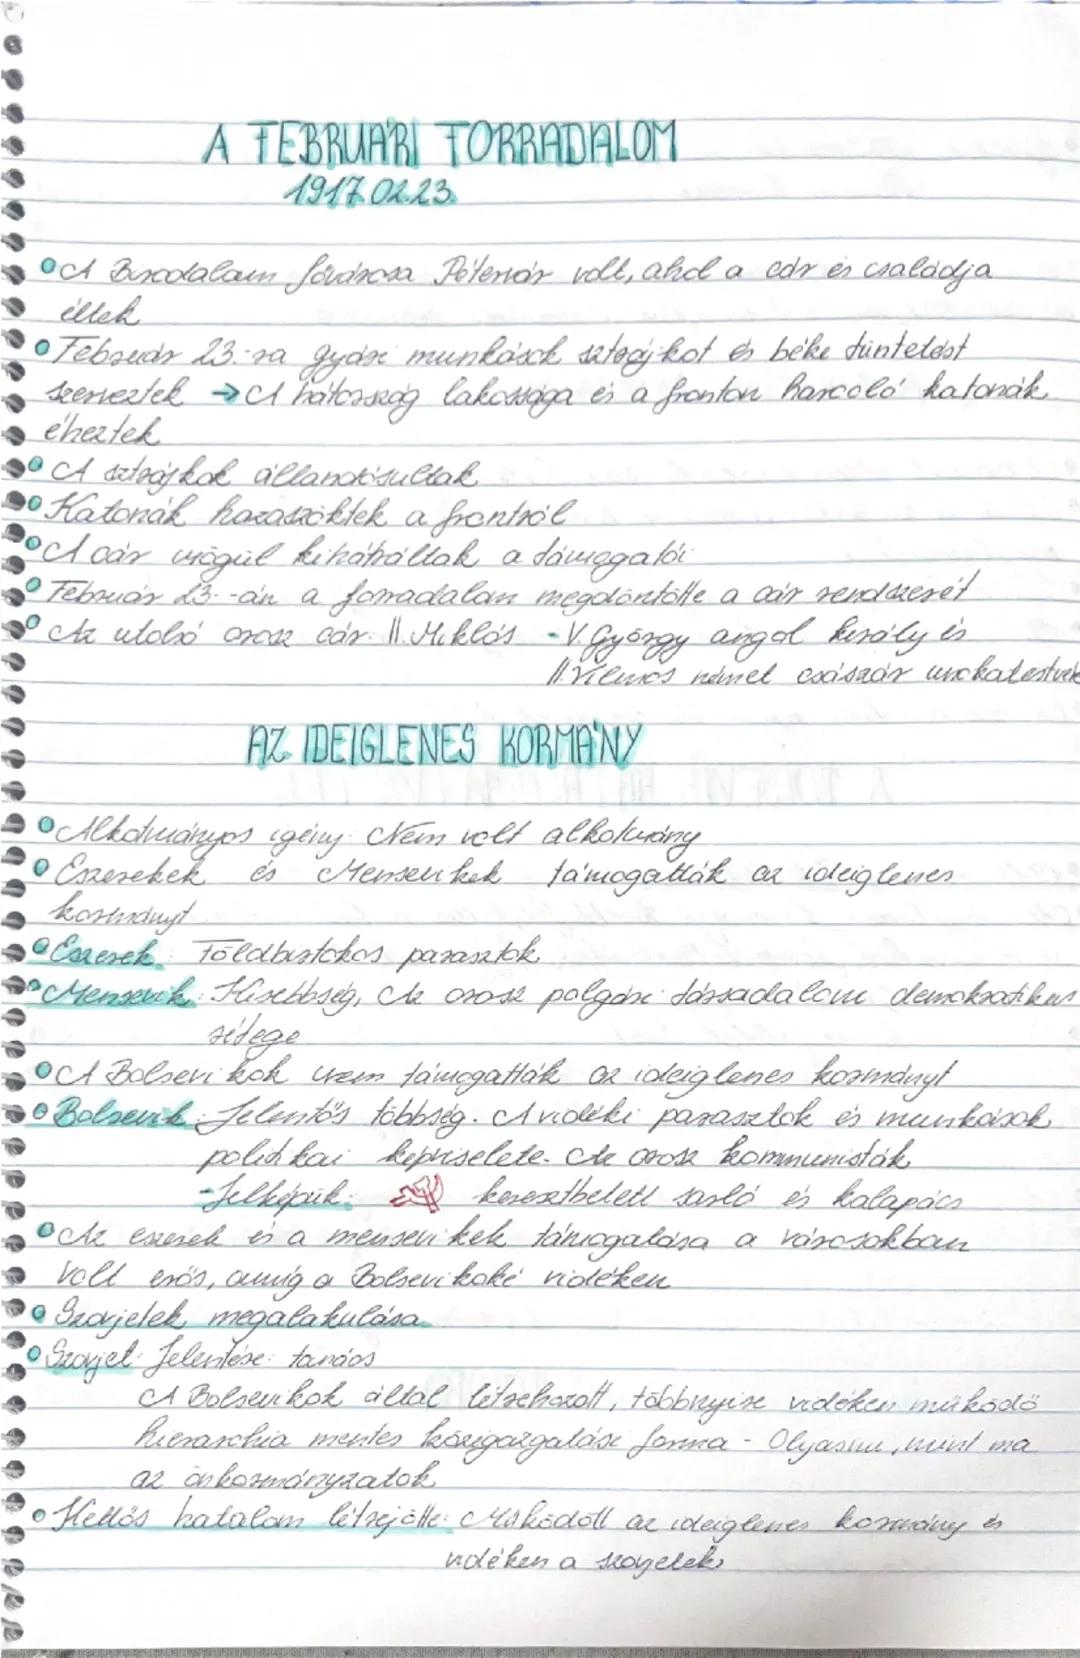 A FEBRUÁRI FORRADALOM
1917.02.23.
A Birodalam fővárosa Pétervár volt, ahol a cár és családja
éltek
Február 23.-ra gyári munkások sztrájkot és béke tüntetést
szerveztek → A hátország lakossága és a fronton harcoló katonák
éheztek
A sztrájkok állandósultak
Katonák hazaszöktek a frontról
A cár mögül kihátráltak a támogatói
Február 23.-án a forradalom megdöntötte a cár rendszerét
Az utolsó orosz cár: II. Miklós - V. György angol király és
II. Vilmos német császár unokatestvére
AZ IDEIGLENES KORMÁNY
Alkotmányos igény: Nem volt alkotmány
Eszerekek és Mensevikek támogatták az ideiglenes
kormányt
Eszerek: Földbirtokos parasztok
Mensevik: Kisebbség, Az orosz polgári társadalom demokratikus
rétege
A Bolsevikok nem támogatták az ideiglenes kormányt
Bolsevik: Jelentős többség. A vidéki parasztok és munkások
politikai képviselete. Az orosz kommunisták
- Jelképük: keresztbetett sarló és kalapács
Az eszerek és a mensevikek támogatása a városokban
volt erős, amíg a Bolsevikoké vidéken
Szovjetek megalakulása
Szovjet: Jelentése: tanács
A Bolsevikok által létrehozott, többnyire vidéken működő
hierarchia mentes közigazgatási forma - Olyasmi, mint ma
az önkormányzatok
Kettős hatalom létrejötte: Működött az ideiglenes kormány és
vidéken a szovjetek